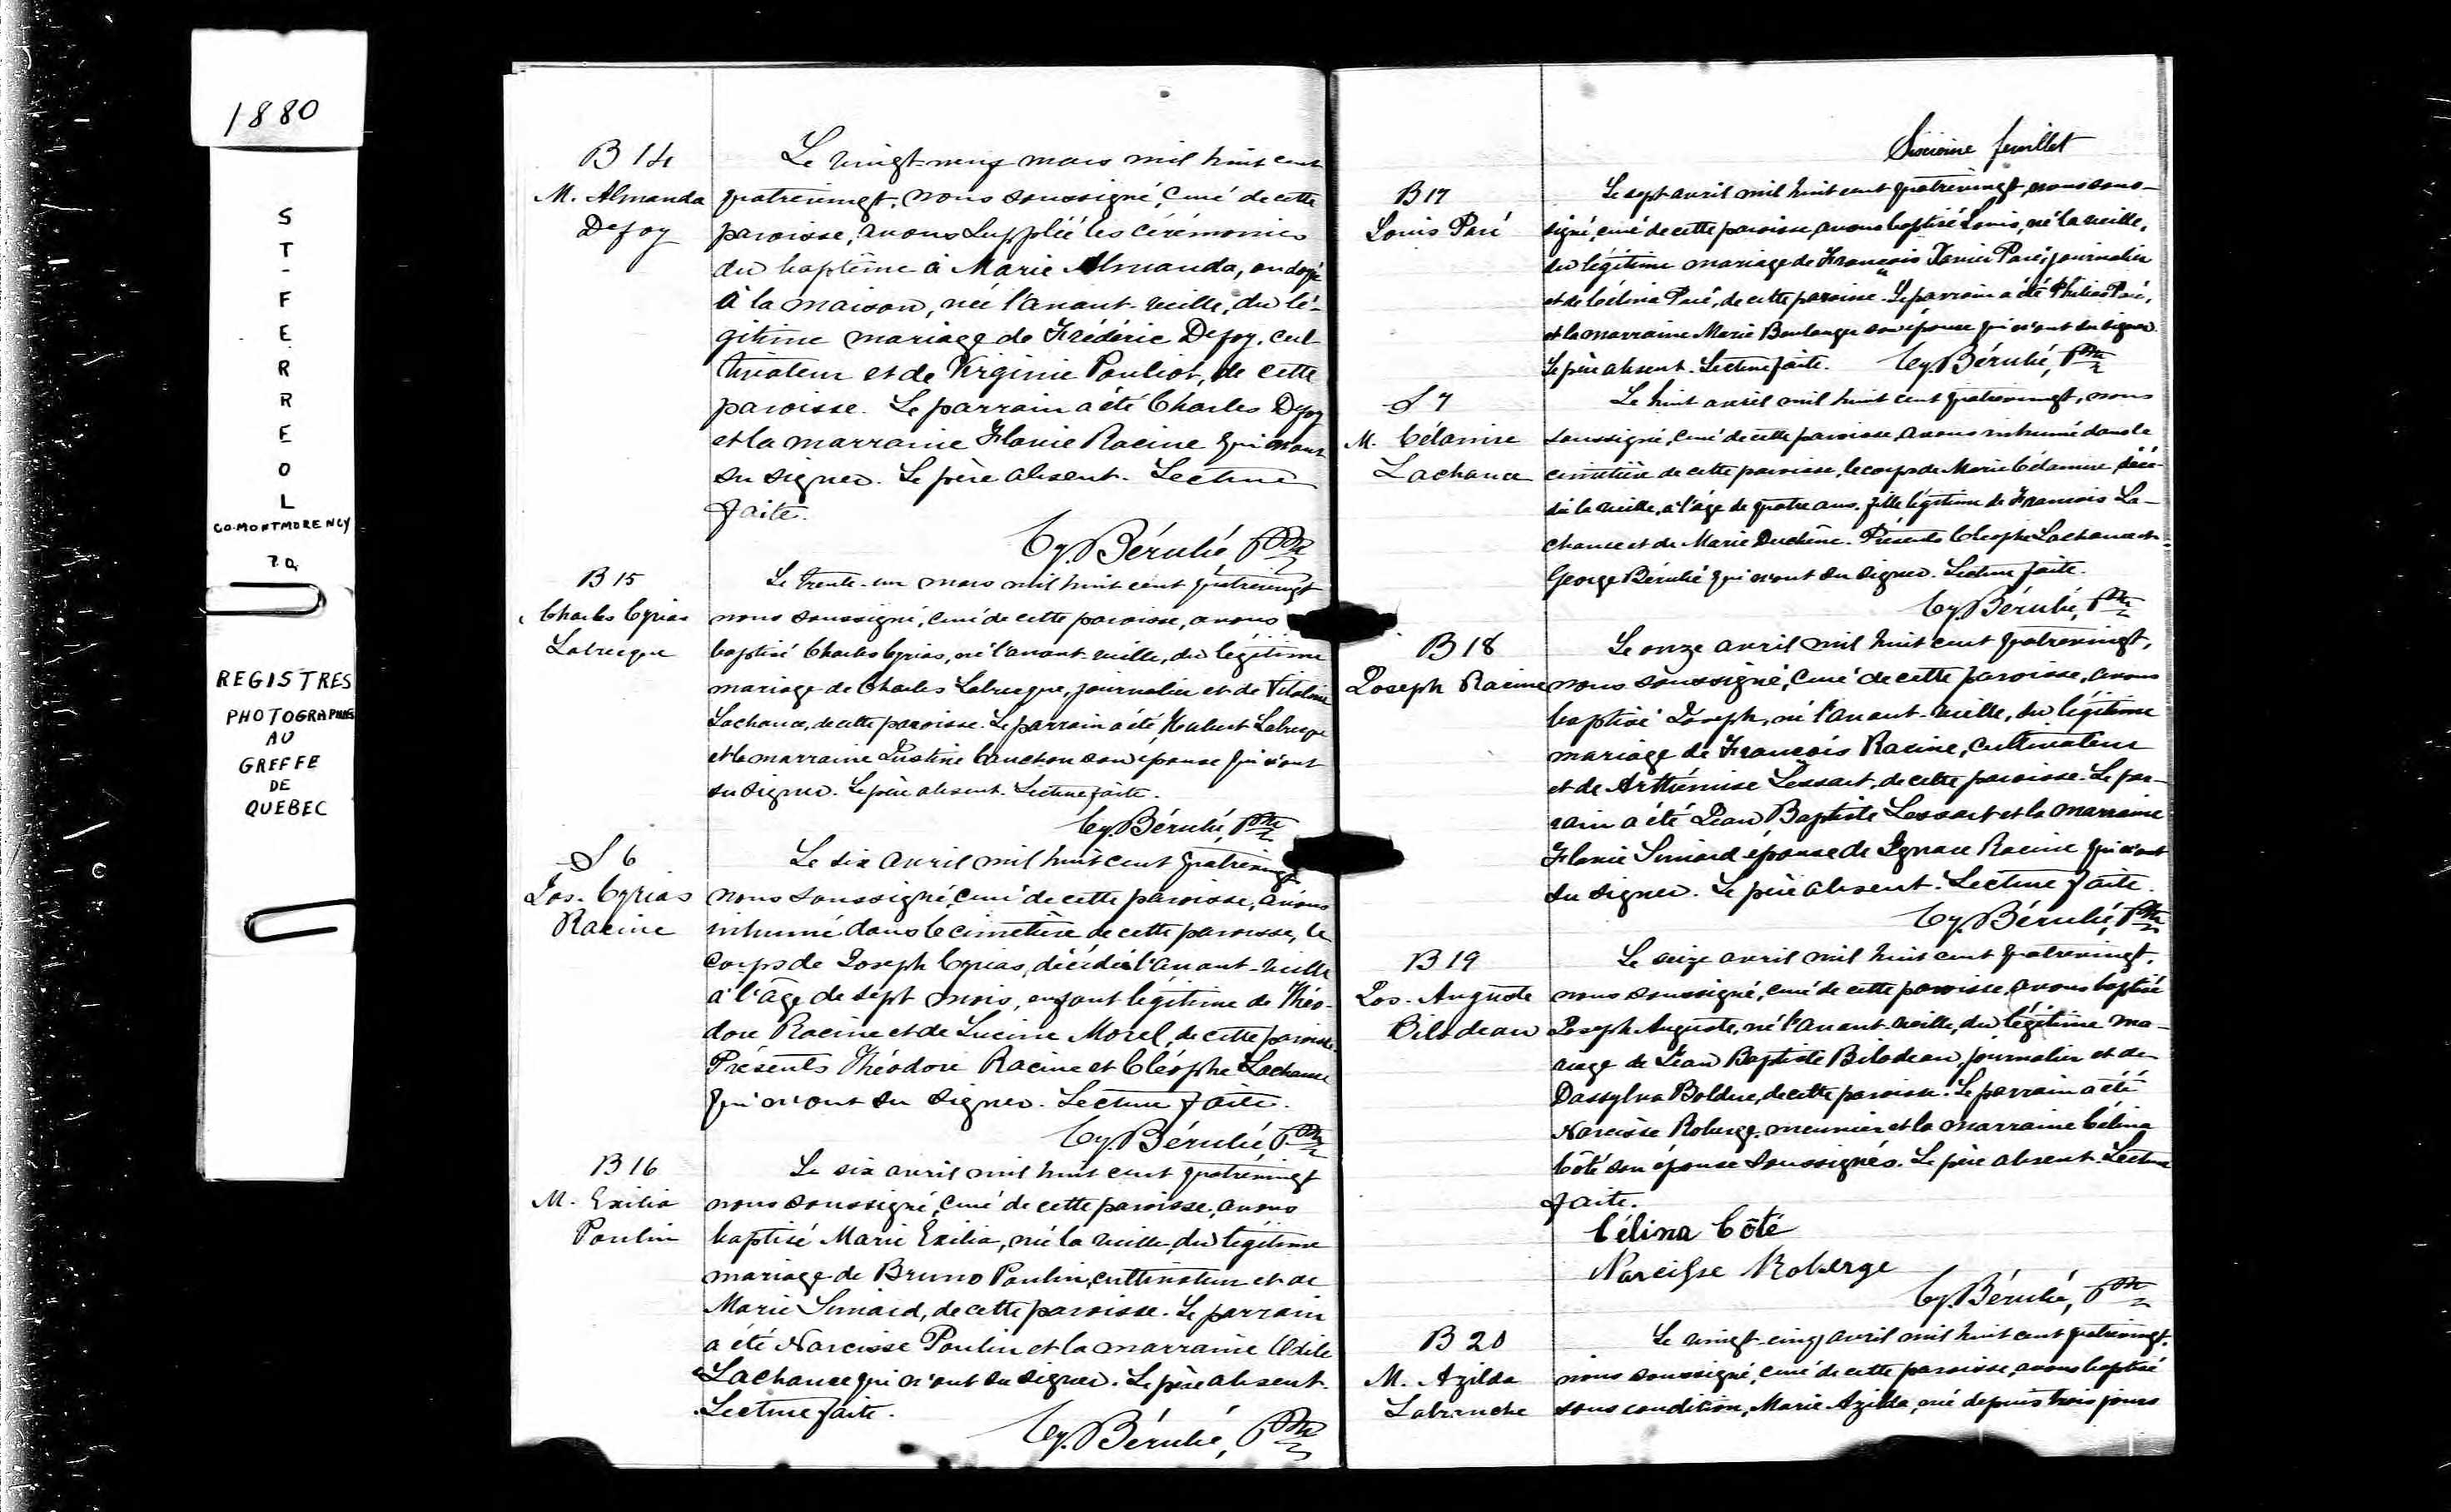 1880
ST-FERREOL
CO. MONTMORENCY
REGISTRES
PHOTOGRAPHIES
AU
GREFFE
DE
QUEBEC
B 14
M. Almanda
Defoy
Le vingt-neuf mars mil huit cent
quatrevingt, nous soussigné, curé de cette
paroisse, avons Suppléé les cérémonies
du baptême à Marie Almanda, ondoyée
à la maison, née l'avant-veille, du lé-
gitime mariage de Frédéric Defoy, cul-
tivateur et de Virginie Pouliot, de cette
paroisse. Le parrain a été Charles Defoy
et la marraine Flavie Racine qui n'ont
su signer. Le père absent. Lecture
faite.
Cy. Bérubé, Ptre
B 15
Charles Cyrias
Labrecque
Le trente-un mars mil huit cent quatrevingt
nous soussigné, curé de cette paroisse, avons
baptisé Charles Cyrias, né l'avant-veille, du légitime
mariage de Charles Labrecque, journalier et de Vitaline
Lachance, de cette paroisse. Le parrain a été Hubert Labrecque
et la marraine Justine Cauchon son épouse qui n'ont
su signer. Le père absent. Lecture faite.
Cy. Bérubé, Ptre
S 6
Jos. Cyrias
Racine
Le six avril mil huit cent quatrevingt
nous soussigné, curé de cette paroisse, avons
inhumé dans le cimetière de cette paroisse, le
corps de Joseph Cyrias, décédé l'avant-veille
à l'âge de sept mois, enfant légitime de Théo-
dore Racine et de Lucine Morel, de cette paroisse.
Présents Théodore Racine et Cléophe Lachance
qui n'ont su signer. Lecture faite.
Cy. Bérubé, Ptre
B 16
M. Exilia
Poulin
Le six avril mil huit cent quatrevingt
nous soussigné, curé de cette paroisse, avons
baptisé Marie Exilia, née la veille, du légitime
mariage de Bruno Poulin, cultivateur et de
Marie Simard, de cette paroisse. Le parrain
a été Narcisse Poulin et la marraine Odile
Lachance qui n'ont su signer. Le père absent.
Lecture faite.
Cy. Bérubé, Ptre
Sixième feuillet
B 17
Louis Paré
Le sept avril mil huit cent quatrevingt, nous sous-
signé, curé de cette paroisse, avons baptisé Louis, né la veille,
du légitime mariage de François Xavier Paré, journalier
et de Célina Paré, de cette paroisse. Le parrain a été Philias Paré,
et la marraine Marie Boulanger son épouse qui n'ont su signer.
Le père absent. Lecture faite. Cy. Bérubé, Ptre
S 7
M. Célanire
Lachance
Le huit avril mil huit cent quatrevingt, nous
soussigné, curé de cette paroisse, avons inhumé dans le
cimetière de cette paroisse, le corps de Marie Célanire, décé-
dée la veille, à l'âge de quatre ans, fille légitime de François La-
chance et de Marie Duchêne. Présents Cléophe Lachance et
George Bérubé qui n'ont su signer. Lecture faite.
Cy. Bérubé, Ptre
B 18
Joseph Racine
Le onze avril mil huit cent quatrevingt,
nous soussigné, curé de cette paroisse, avons
baptisé Joseph, né l'avant-veille, du légitime
mariage de François Racine, cultivateur
et de Arthémise Lessart, de cette paroisse. Le par-
rain a été Jean Baptiste Lessart et la marraine
Flavie Simard épouse de Ignace Racine qui n'ont
su signer. Le père absent. Lecture faite.
Cy. Bérubé, Ptre
B 19
Jos. Auguste
Bilodeau
Le seize avril mil huit cent quatrevingt,
nous soussigné, curé de cette paroisse, avons baptisé
Joseph Auguste, né l'avant-veille, du légitime ma-
riage de Jean Baptiste Bilodeau, journalier et de
Dassylva Bolduc, de cette paroisse. Le parrain a été
Narcisse Roberge, meunier et la marraine Célina
Côté son épouse soussignés. Le père absent. Lecture
faite.
Célina Côté
Narcisse Roberge
Cy. Bérubé, Ptre
B 20
M. Azilda
Labranche
Le vingt-cinq avril mil huit cent quatrevingt,
nous soussigné, curé de cette paroisse, avons baptisé
sous condition, Marie Azilda, née depuis trois jours